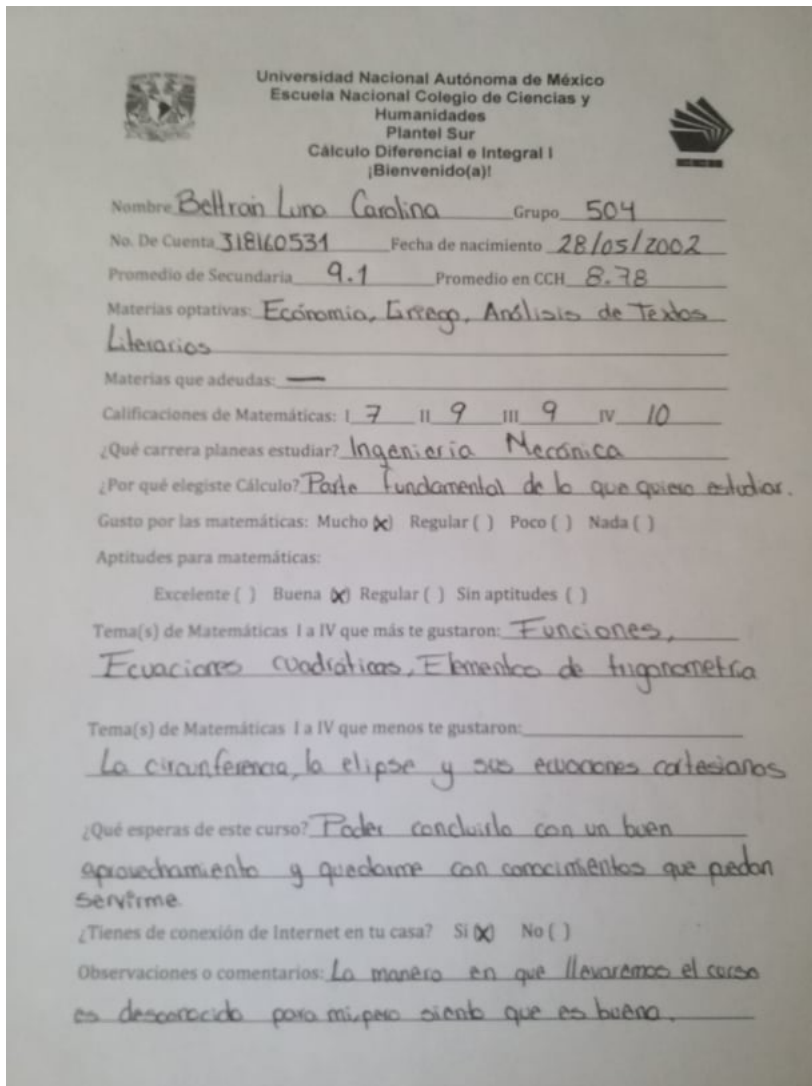 Universidad Nacional Autónoma de México
Escuela Nacional Colegio de Ciencias y
Humanidades
Plantel Sur
Cálculo Diferencial e Integral I
¡Bienvenido(a)!
Nombre Beltrán Luna Carolina Grupo 504
No. De Cuenta 318160531 Fecha de nacimiento 28/05/2002
Promedio de Secundaria 9.1 Promedio en CCH 8.78
Materias optativas: Ecónomia, Griego, Análisis de Textos
Literarios
Materias que adeudas: —
Calificaciones de Matemáticas: I 7 II 9 III 9 IV 10
¿Qué carrera planeas estudiar? Ingenieria Mecánica
¿Por qué elegiste Cálculo? Parte fundamental de lo que quiero estudiar.
Gusto por las matemáticas: Mucho (x) Regular ( ) Poco ( ) Nada ( )
Aptitudes para matemáticas:
Excelente ( ) Buena (x) Regular ( ) Sin aptitudes ( )
Tema(s) de Matemáticas I a IV que más te gustaron: Funciones,
Ecuaciones cuadráticas, Elementos de trigonometría
Tema(s) de Matemáticas I a IV que menos te gustaron:
La circunferencia, la elipse y sus ecuaciones cartesianas
¿Qué esperas de este curso? Poder concluirlo con un buen
aprovechamiento y quedarme con conocimientos que puedan
servirme.
¿Tienes de conexión de Internet en tu casa? Si (x) No ( )
Observaciones o comentarios: La manera en que llevaremos el curso
es desconocido para mi, pero siento que es buena.